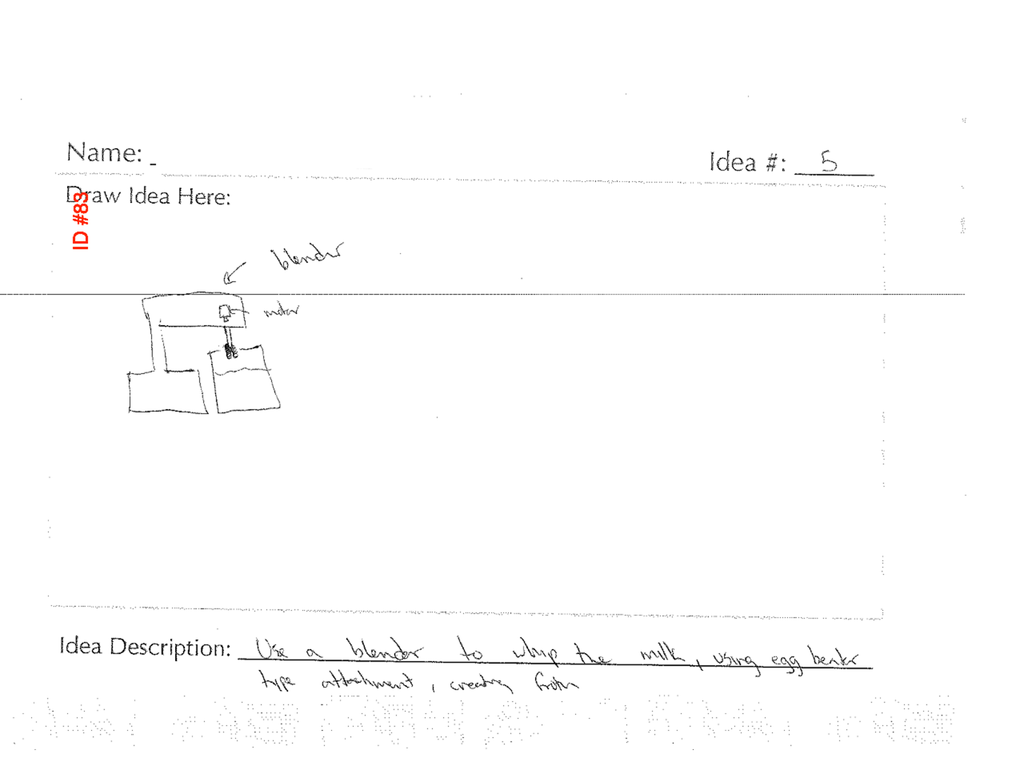 Name: -
Idea #: 5
Draw Idea Here:
ID #83
blender
motor
Idea Description: Use a blender to whip the milk, using egg beater
type attachment, creating froth